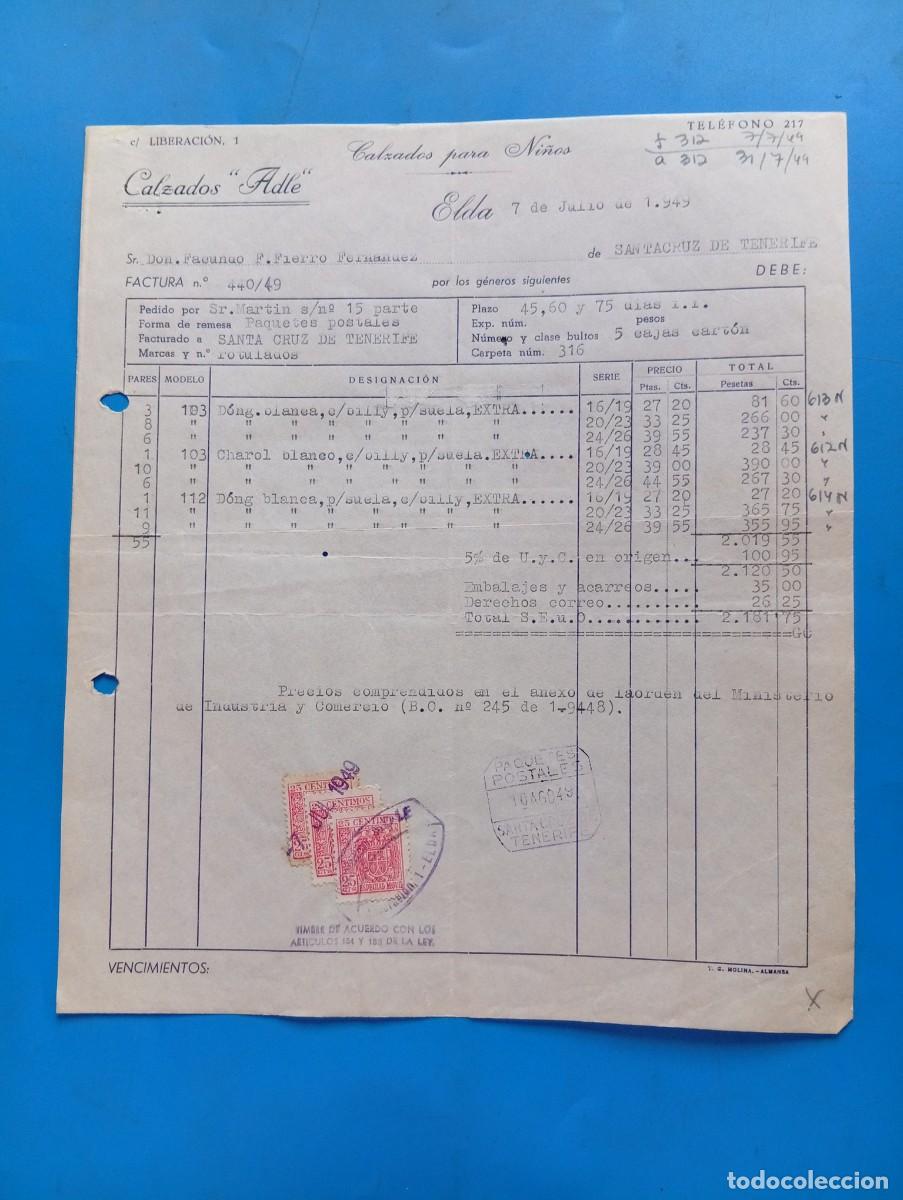 c/ LIBERACIÓN, 1
TELÉFONO 217
Calzados para Niños
f 312 7/7/49
a 312 31/7/49
Calzados "Adle"
Elda 7 de Julio de 1.949
Sr. Don. Facundo F. Fierro Fernández de SANTACRUZ DE TENERIFE
FACTURA n.º 440/49 por los géneros siguientes DEBE:
Pedido por Sr.Martin s/nº 15 parte
Forma de remesa Paquetes postales
Facturado a SANTA CRUZ DE TENERIFE
Marcas y n.º rotulados
Plazo 45,60 y 75 dias f.f.
Exp. núm. pesos
Número y clase bultos 5 cajas cartón
Carpeta núm. 316
PARES MODELO DESIGNACIÓN SERIE PRECIO TOTAL
Ptas. Cts. Pesetas Cts.
3 103 Dóng.blanca,c/billy,p/suela,EXTRA...... 16/19 27 20 81 60 613 N
8 " " " " " " " " 20/23 33 25 266 00 "
6 " " " " " " " " 24/26 39 55 237 30 "
1 103 Charol blanco,c/billy,p/suela.EXTRA.... 16/19 28 45 28 45 612 N
10 " " " " " " " " 20/23 39 00 390 00 "
6 " " " " " " " " 24/26 44 55 267 30 "
1 112 Dóng blanca,p/suela,c/billy,EXTRA...... 16/19 27 20 27 20 614 N
11 " " " " " " " " 20/23 33 25 365 75 "
9 " " " " " " " " 24/26 39 55 355 95 "
55 2.019 55
5% de U.y.C. en origen... 100 95
2.120 50
Embalajes y acarreos..... 35 00
Derechos correo........... 26 25
Total S.E.u.O............. 2.181 75
GC
Precios comprendidos en el anexo de laorden del Ministerio
de Industria y Comercio (B.O. nº 245 de 1.9448).
PAQUETES
POSTALES
10 AGO 49
SANTA CRUZ DE
TENERIFE
1949
25 CENTIMOS
25 CENTIMOS
25 CENTIMOS
ESPECIAL MOVIL
TIMBRE DE ACUERDO CON LOS
ARTICULOS 184 Y 188 DE LA LEY.
VENCIMIENTOS:
T. G. MOLINA.-ALMANSA
X
todocoleccion